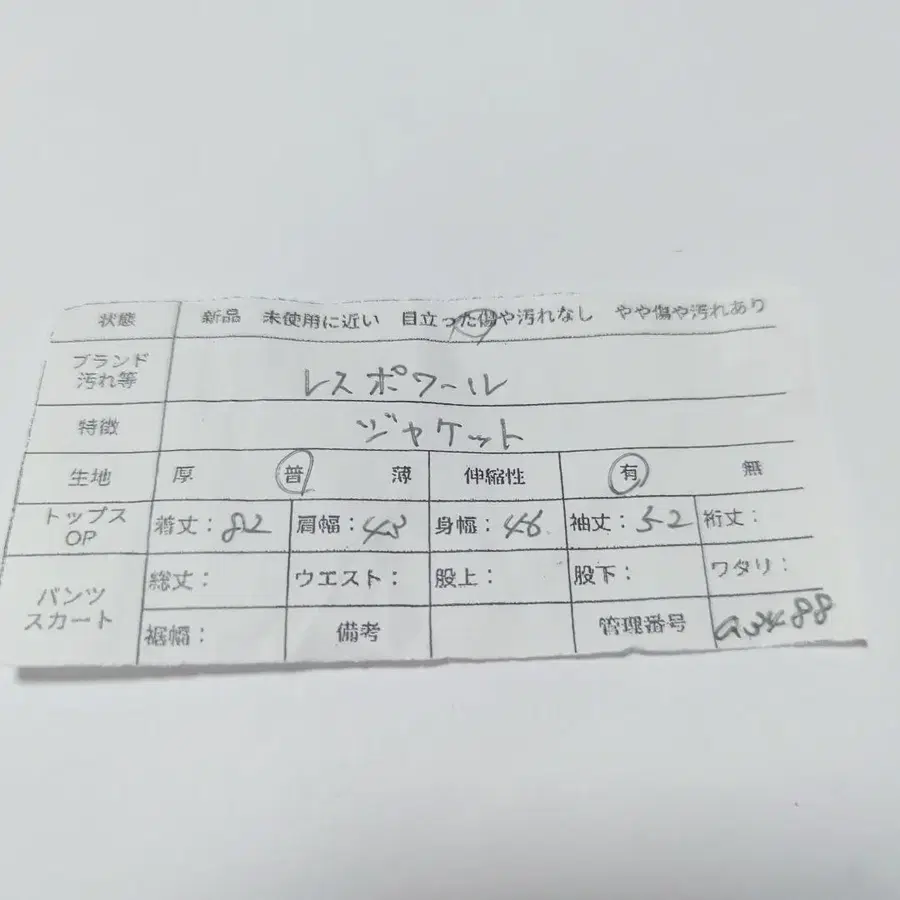 状態 新品 未使用に近い 目立った傷や汚れなし やや傷や汚れあり
ブランド
汚れ等 レスポワール
特徴 ジャケット
生地 厚 普 薄 伸縮性 有 無
トップス
OP 着丈：82 肩幅：43 身幅：46 袖丈：52 裄丈：
パンツ
スカート 総丈： ウエスト： 股上： 股下： ワタリ：
裾幅： 備考 管理番号 a3488